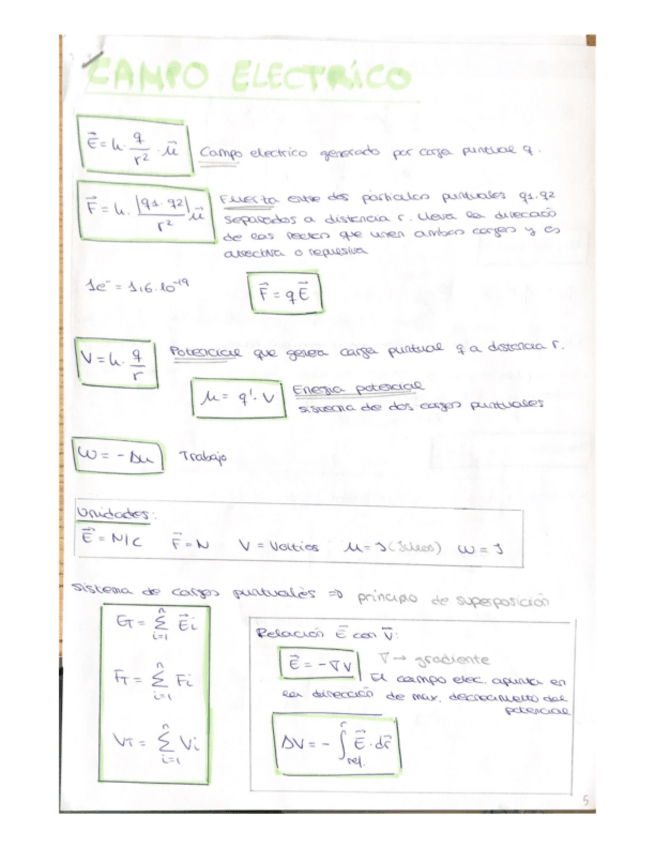 CAMPO ELECTRICO
E⃗ = k · q/r² · u⃗ Campo electrico generado por carga puntual q.
F⃗ = k · |q1·q2|/r² u⃗ Fuerza entre dos particulas puntuales q1,q2
separados a distancia r. lleva la dirección
de las rectas que unen ambas cargas y es
atractiva o repulsiva
1e⁻ = 1,6·10⁻¹⁹ F⃗ = qE⃗
V = k · q/r Potencial que genera carga puntual q a distancia r.
u = q'·V Energia potencial
sistema de dos cargas puntuales
W = -Δu Trabajo
Unidades:
E⃗ = N/C F⃗ = N V = Voltios u = J (Julios) W = J
Sistema de cargas puntuales ⇒ principio de superposición
E_T = Σ_{i=1}^{n} E⃗i
F_T = Σ_{i=1}^{n} Fi
V_T = Σ_{i=1}^{n} Vi
Relación E⃗ con V⃗:
E⃗ = -∇V ∇ → gradiente
El campo elec. apunta en
la dirección de max. decrecimiento del
potencial
ΔV = -∫_{ref.}^{r} E⃗ · dr⃗
5